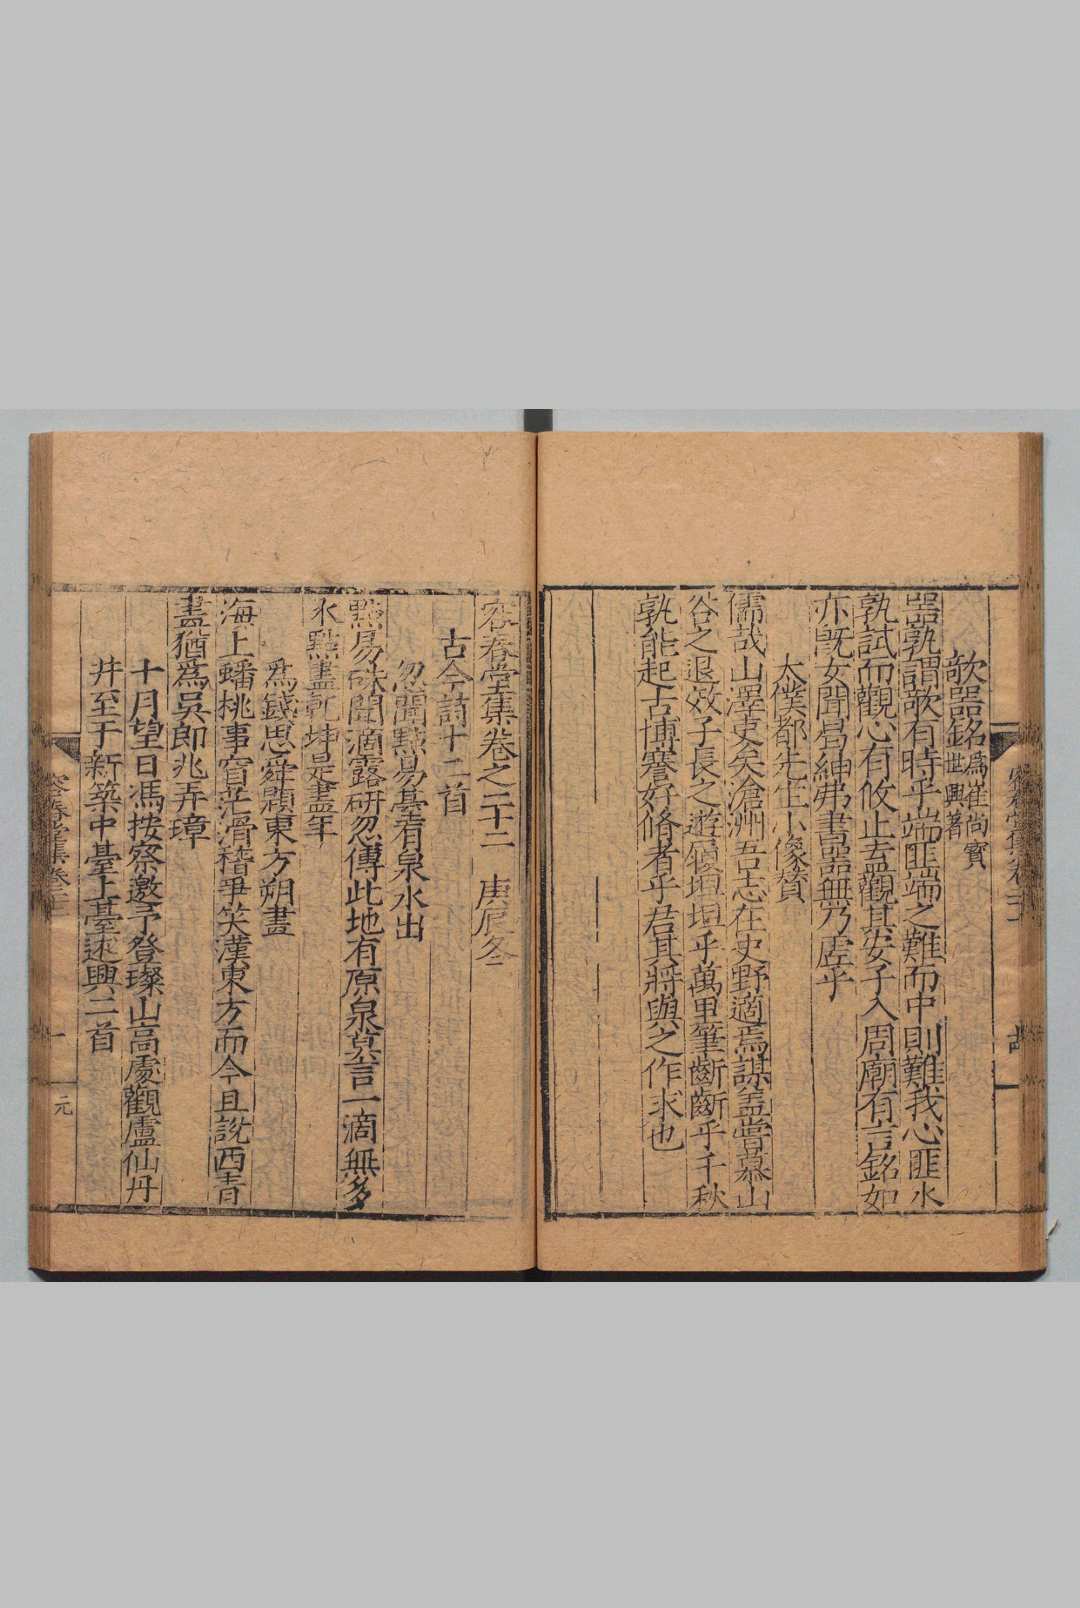 欹器銘為崔尚寶世興著
器孰謂欹有時乎端匪端之難而中則難我心匪水
孰試而觀心有攸止盍觀其安子入周廟有言銘如
亦既女聞曷紳弗書器無乃虛乎
太僕都先生小像贊
儒哉山澤吏矣滄洲吾志在史野適焉謀蓋嘗慕山
谷之退效子長之遊頤坦坦乎萬里筆齗齗乎千秋
孰能起古博謇好脩者乎君其將與之作求也
容春堂集卷之二十二　庚辰冬
古今詩十二首
忽聞點易臺有泉水出
點易硃聞滴露研忽傳此地有原泉莫言一滴無多
水點盡乾坤是盡年
為錢思舜題東方朔畫
海上蟠桃事窅茫滑稽爭笑漢東方而今且說西青
盡猶為吳郎兆弄璋
十月望日馮按察邀予登璨山高處觀盧仙丹
井至于新築中臺上臺遂興二首
容春堂集卷二十二
一
元